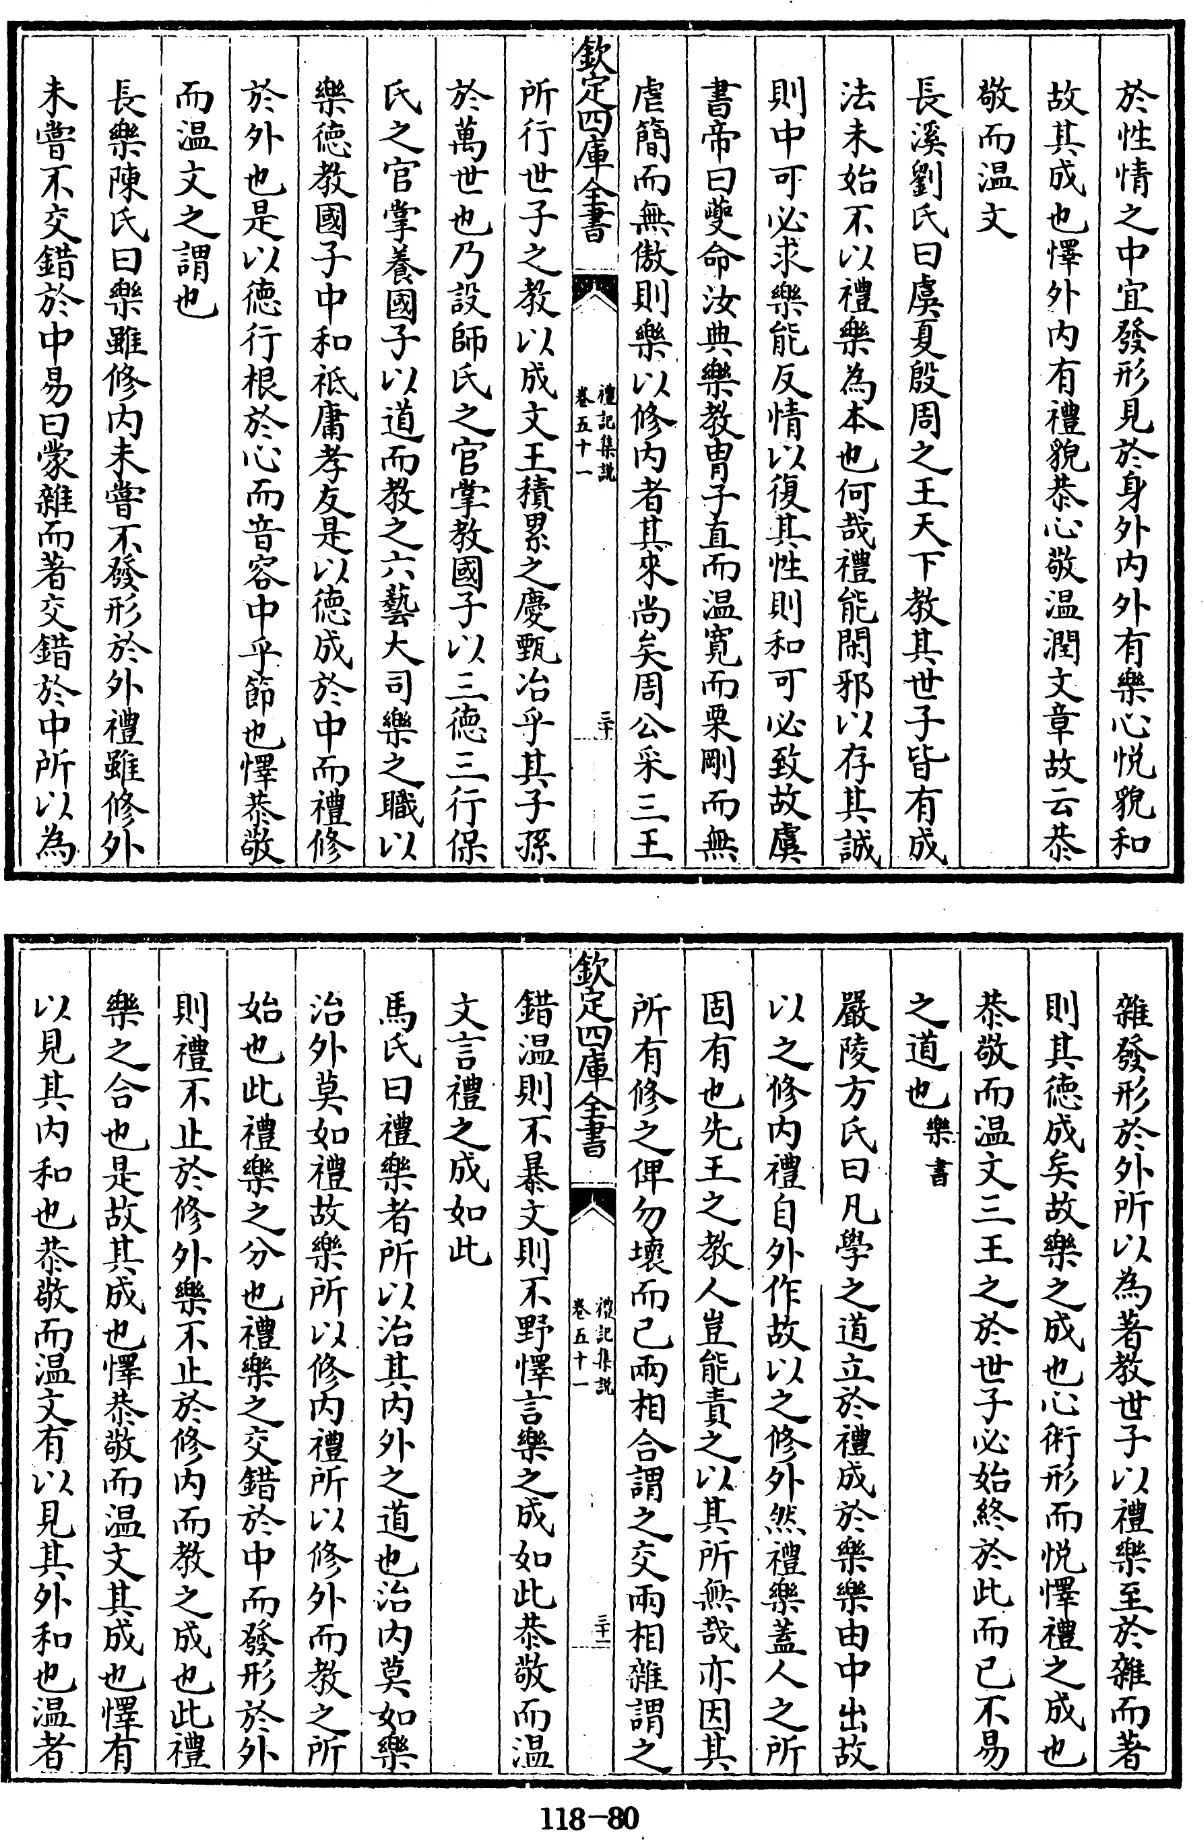 於性情之中宜發形見於身外内外有樂心悦貌和
故其成也懌外内有禮貌恭心敬温潤文章故云恭
敬而温文
長溪劉氏曰虞夏殷周之王天下教其世子皆有成
法未始不以禮樂為本也何哉禮能閑邪以存其誠
則中可必求樂能反情以復其性則和可必致故虞
書帝曰夔命汝典樂教胄子直而温寛而栗剛而無
虐簡而無傲則樂以修内者其來尚矣周公采三王
欽定四庫全書
禮記集說
卷五十一
三十
所行世子之教以成文王積累之慶甄冶乎其子孫
於萬世也乃設師氏之官掌教國子以三徳三行保
氏之官掌養國子以道而教之六藝大司樂之職以
樂徳教國子中和祗庸孝友是以徳成於中而禮修
於外也是以徳行根於心而音容中乎節也懌恭敬
而温文之謂也
長樂陳氏曰樂雖修内未嘗不發形於外禮雖修外
未嘗不交錯於中易曰蒙雜而著交錯於中所以為
雜發形於外所以為著教世子以禮樂至於雜而著
則其徳成矣故樂之成也心術形而悦懌禮之成也
恭敬而温文三王之於世子必始終於此而已不易
之道也樂書
嚴陵方氏曰凡學之道立於禮成於樂樂由中出故
以之修内禮自外作故以之修外然禮樂蓋人之所
固有也先王之教人豈能責之以其所無哉亦因其
所有修之俾勿壞而已兩相合謂之交兩相雜謂之
欽定四庫全書
禮記集說
卷五十一
三十一
錯温則不暴文則不野懌言樂之成如此恭敬而温
文言禮之成如此
馬氏曰禮樂者所以治其内外之道也治内莫如樂
治外莫如禮故樂所以修内禮所以修外而教之所
始也此禮樂之分也禮樂之交錯於中而發形於外
則禮不止於修外樂不止於修内而教之成也此禮
樂之合也是故其成也懌恭敬而温文其成也懌有
以見其内和也恭敬而温文有以見其外和也温者
118-80